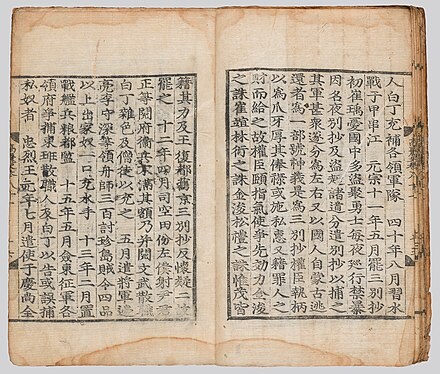 人白丁充補各領軍隊　四十年八月習水
戰于甲串江　元宗十一年五月罷三別抄
初崔瑀憂國中多盜聚勇士每夜巡行禁暴
因名夜別抄及盜起諸道分遣別抄以捕之
其軍甚衆遂分為左右又以國人自蒙古逃
還者為一部號神義是為三別抄權臣執柄
以為爪牙厚其俸祿或施私惠又籍罪人之
財而給之故權臣頤指氣使爭先効力金浚
之誅崔竩林衍之誅金浚松禮之誅惟茂皆
籍其力及王復都舊京三別抄反懷疑二故
罷之　十二年四月司空田份左僕射尹君
正等閱府衛兵不滿其額乃并閱文武散職
白丁雜色及僧徒以充之　五月遣將軍邊
亮李守深等領舟師三百討珍島賊令四品
以上出家奴一口充水手　十三年二月置
戰艦兵粮都監　十五年五月僉東征軍各
領府爭捕東班散職人及白丁以告或誤捕
私奴者　忠烈王元年七月遣使于慶尙全